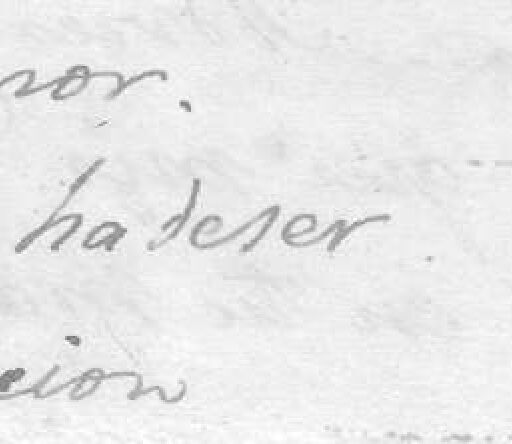 nor.
ha de ser
cion